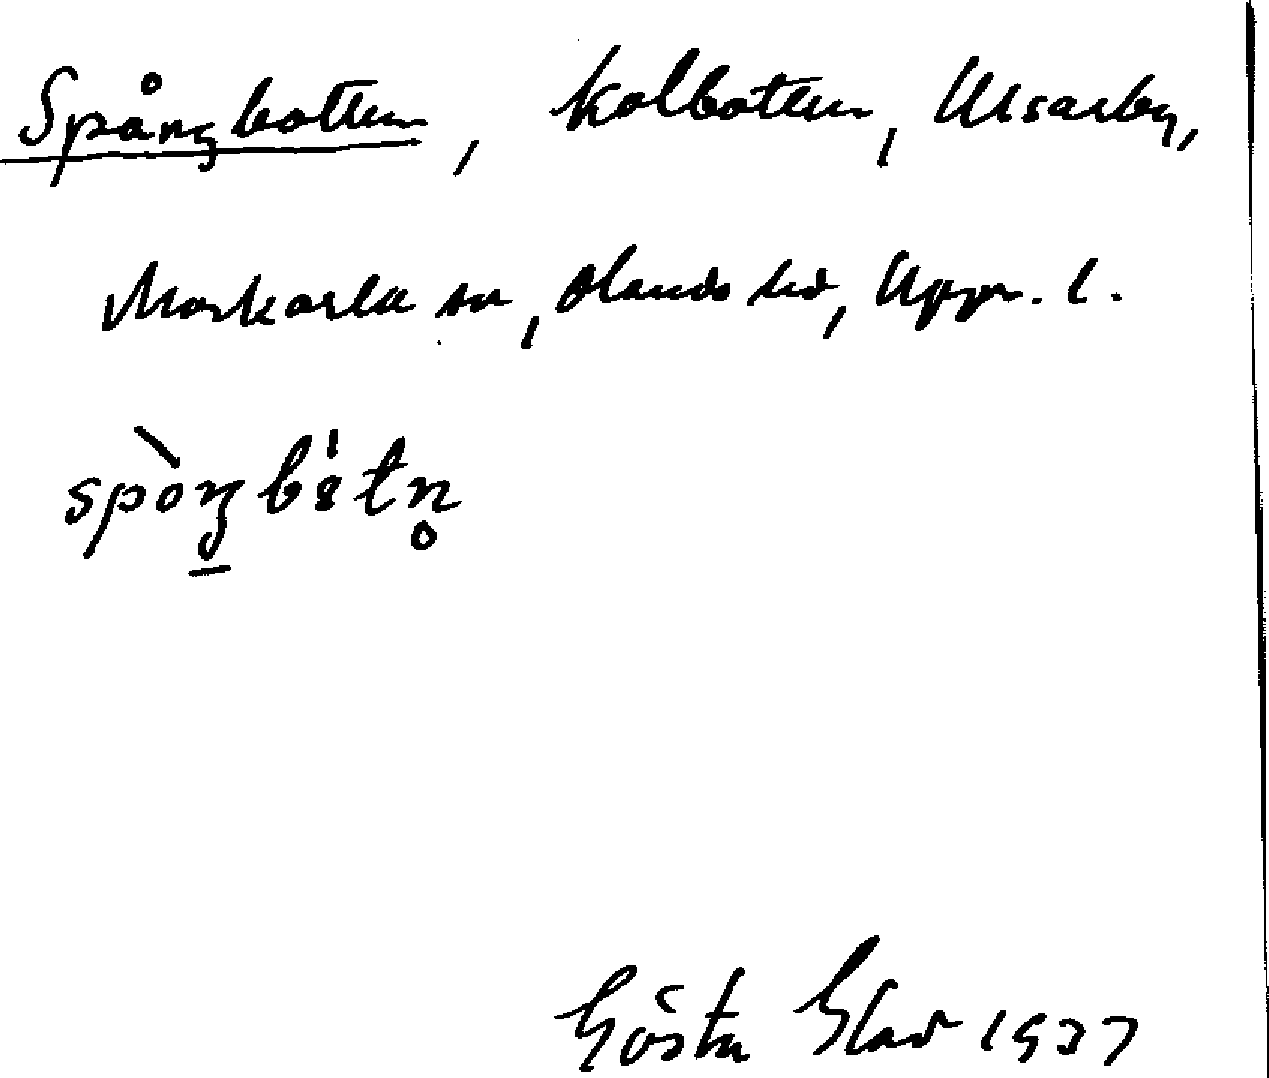 Spångbotten, kolbotten, Ulsarby,
Morkarla sn, Olands hd, Uppl.
spòŋbɵtn̥
Gösta Glad 1937